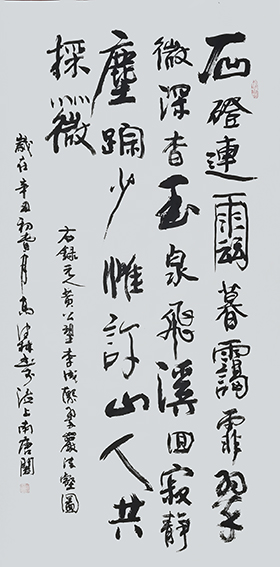 石磴連雲暮靄霏翠
微深杳玉泉飛溪回寂靜
塵踪少惟許山人共
採薇
右録元人黃公望李咸熙翠巖流壑圖
歲在辛丑初春月馬林書於滬上南唐閣